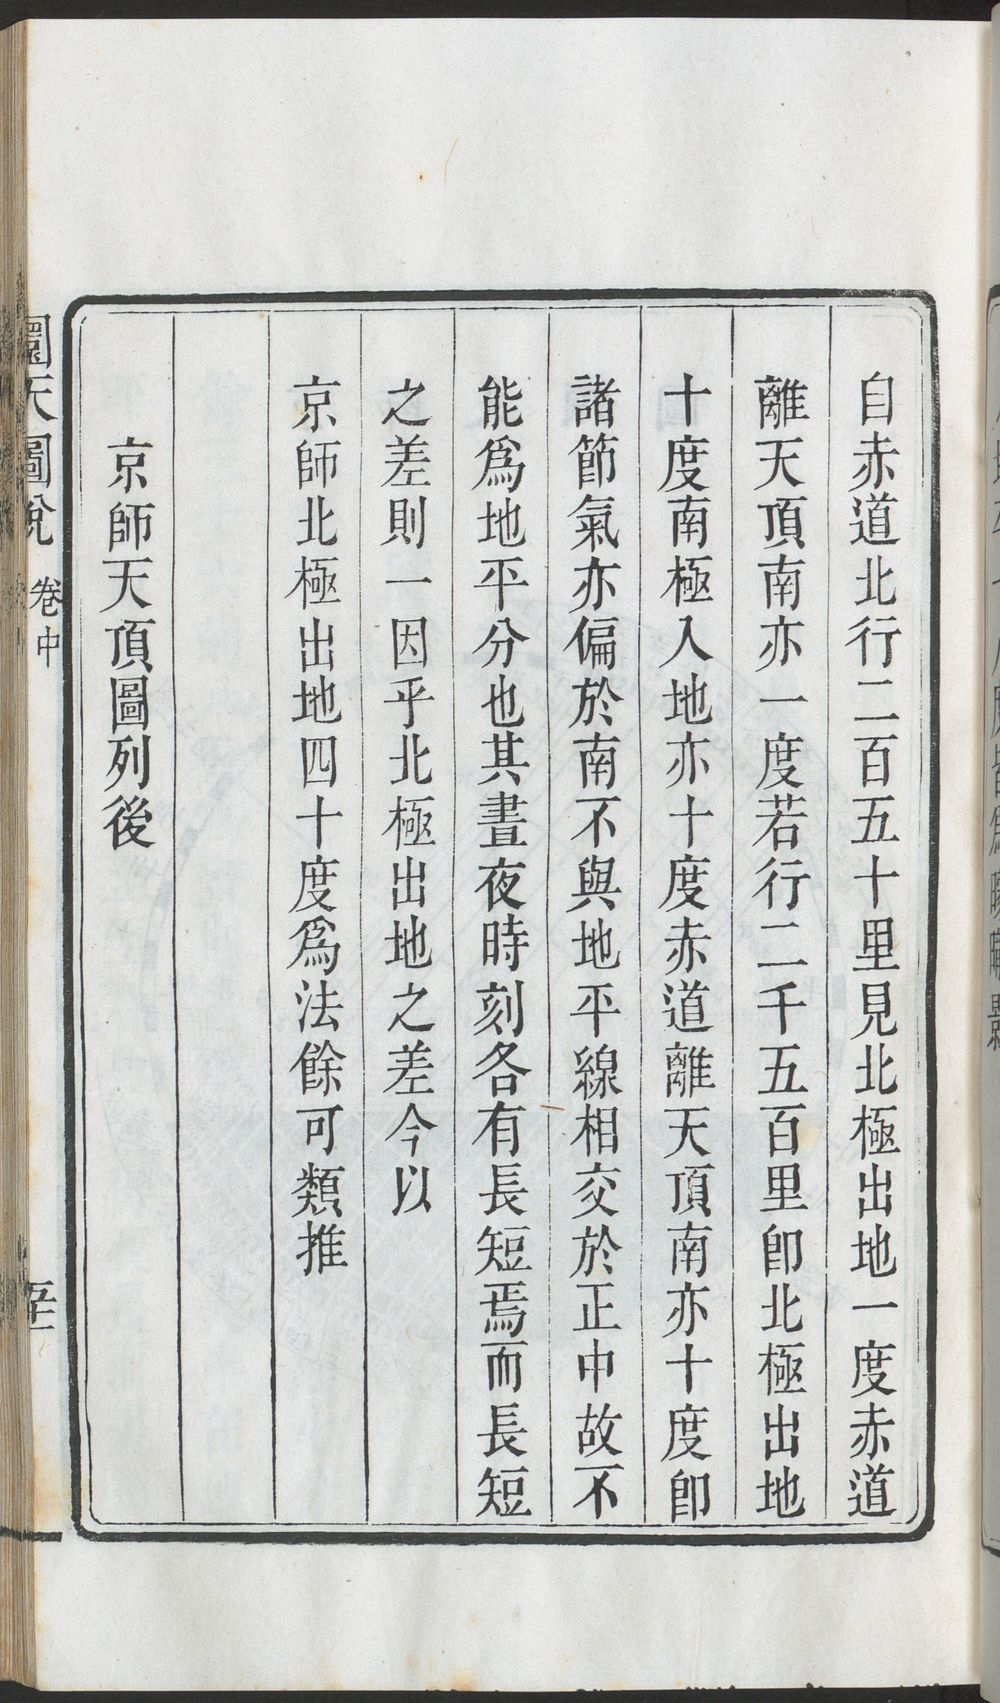 自赤道北行二百五十里見北極出地一度赤道
離天頂南亦一度若行二千五百里卽北極出地
十度南極入地亦十度赤道離天頂南亦十度卽
諸節氣亦偏於南不與地平線相交於正中故不
能爲地平分也其晝夜時刻各有長短焉而長短
之差則一因乎北極出地之差今以
京師北極出地四十度爲法餘可類推
京師天頂圖列後
圜天圖說
卷中